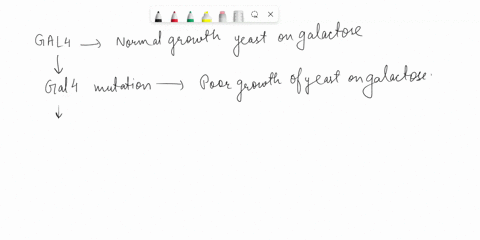 GAL4 → Normal growth yeast on galactose
↓
Gal4 mutation → Poor growth of yeast on galactose.
↓